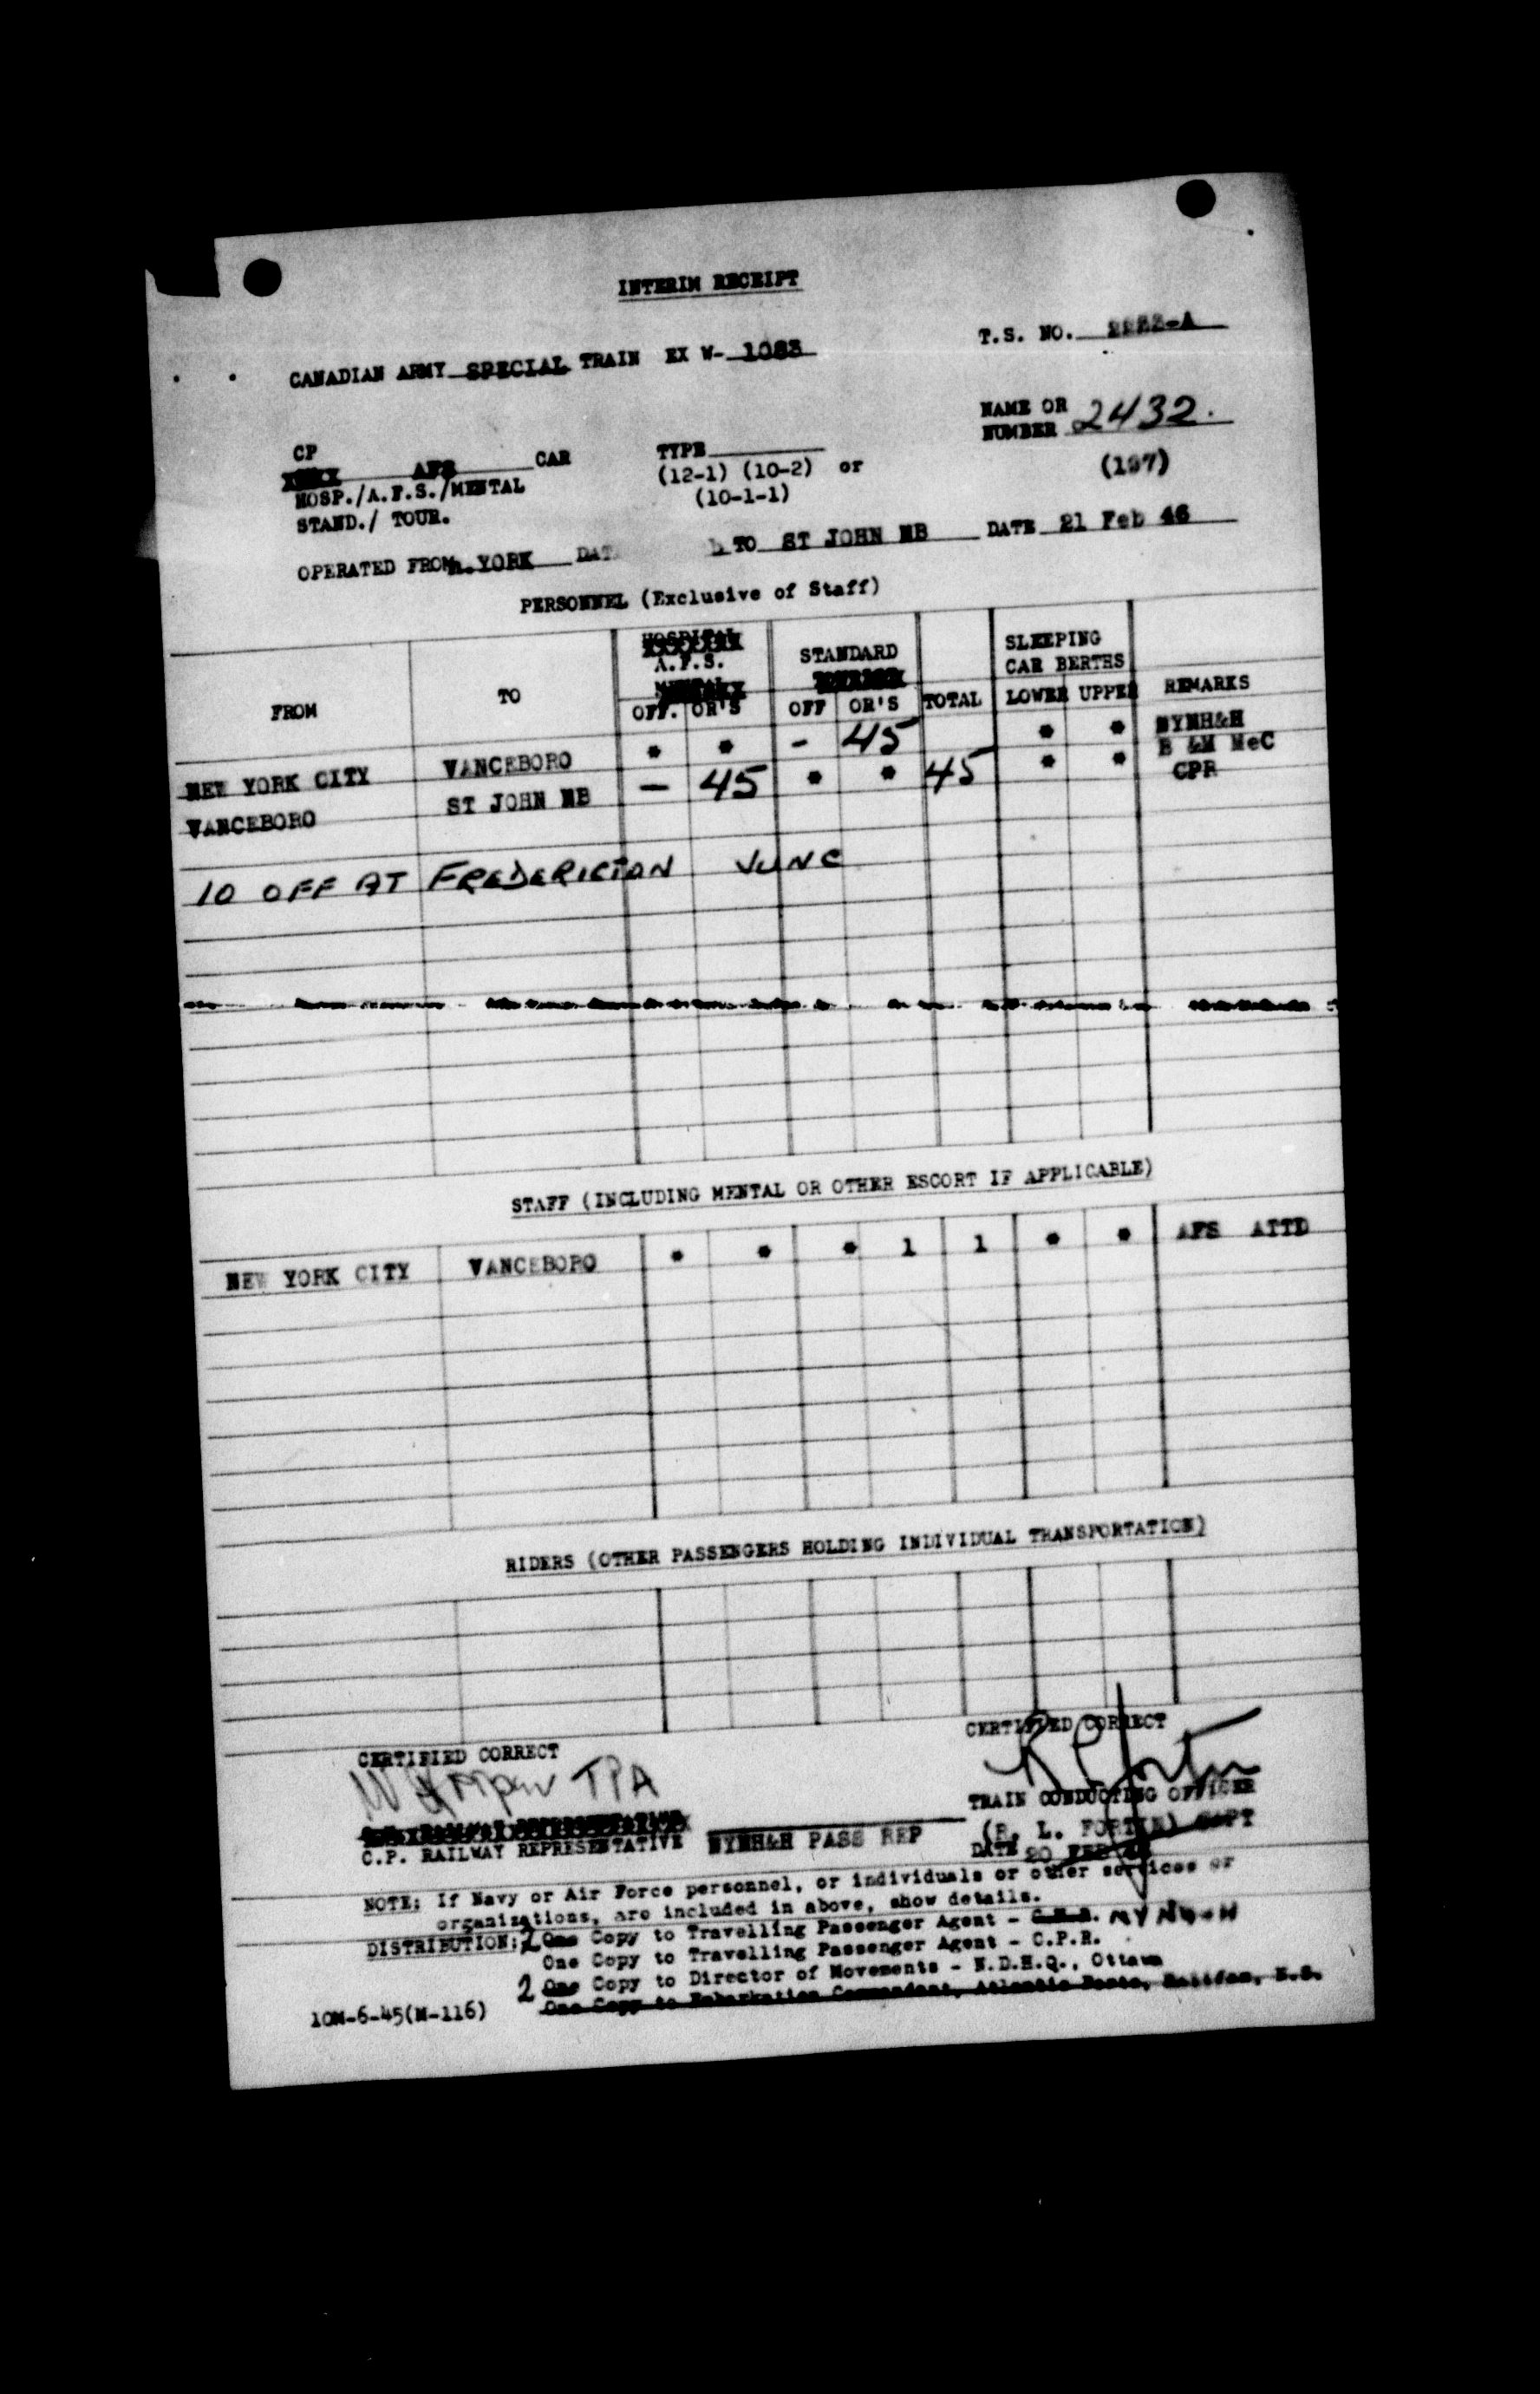 INTERIM RECEIPT
T.S. NO.
CANADIAN ARMY SPECIAL TRAIN EX W- 1083
NAME OR
NUMBER 2432.
CP
AFS CAR
TYPE
(12-1) (10-2) or
(10-1-1)
HOSP./A.F.S./MENTAL
STAND./ TOUR.
OPERATED FROM n.YORK DAT TO ST JOHN NB DATE 21 Feb 46
PERSONNEL (Exclusive of Staff)
FROM TO HOSPITAL A.F.S. MENTAL STANDARD TOTAL SLEEPING CAR BERTHS REMARKS
OFF. OR'S OFF OR'S LOWER UPPER
NEW YORK CITY VANCEBORO * * - 45 * * NYNH&H
B &M MeC
VANCEBORO ST JOHN NB — 45 * * 45 * * CPR
10 OFF AT FREDERICTON JUNC
STAFF (INCLUDING MENTAL OR OTHER ESCORT IF APPLICABLE)
NEW YORK CITY VANCEBORO * * * 1 1 * * AFS ATTD
RIDERS (OTHER PASSENGERS HOLDING INDIVIDUAL TRANSPORTATION)
CERTIFIED CORRECT
CERTIFIED CORRECT
TPA
TRAIN CONDUCTING OFFICER
C.P. RAILWAY REPRESENTATIVE NYNH&H PASS REP
(R. L. FORTIN) CAPT
DATE 20 FEB 46
NOTE: If Navy or Air Force personnel, or individuals or other services or
organizations, are included in above, show details.
DISTRIBUTION: 2 One Copy to Travelling Passenger Agent - C.N.R. NYNH-H
One Copy to Travelling Passenger Agent - C.P.R.
2 One Copy to Director of Movements - N.D.H.Q., Ottawa
One Copy to Embarkation Commandant, Atlantic Ports, Halifax, N.S.
10M-6-45(M-116)